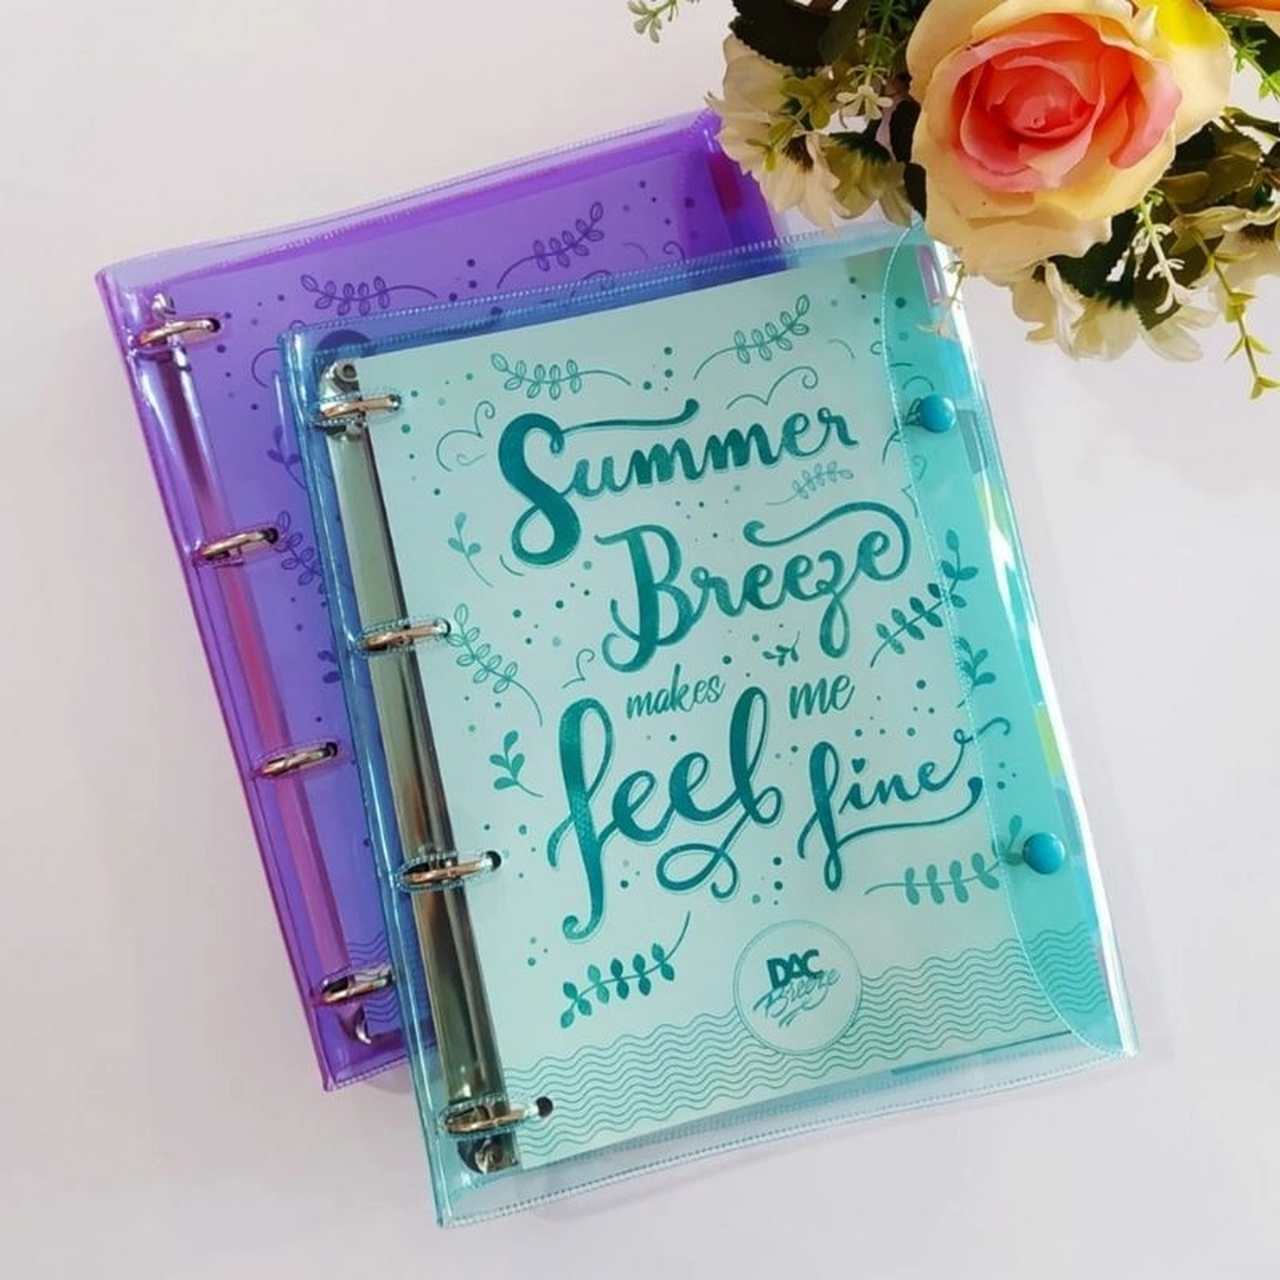 Summer
Breeze
makes me
feel fine
DAC
Breeze